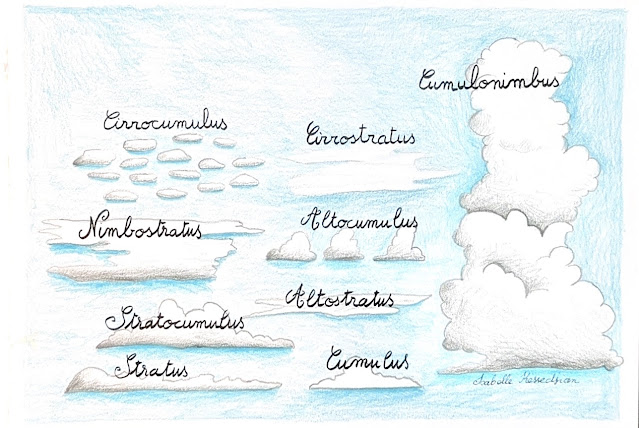 Cumulonimbus
Cirrocumulus
Cirrostratus
Nimbostratus
Altocumulus
Altostratus
Stratocumulus
Stratus
Cumulus
Isabelle